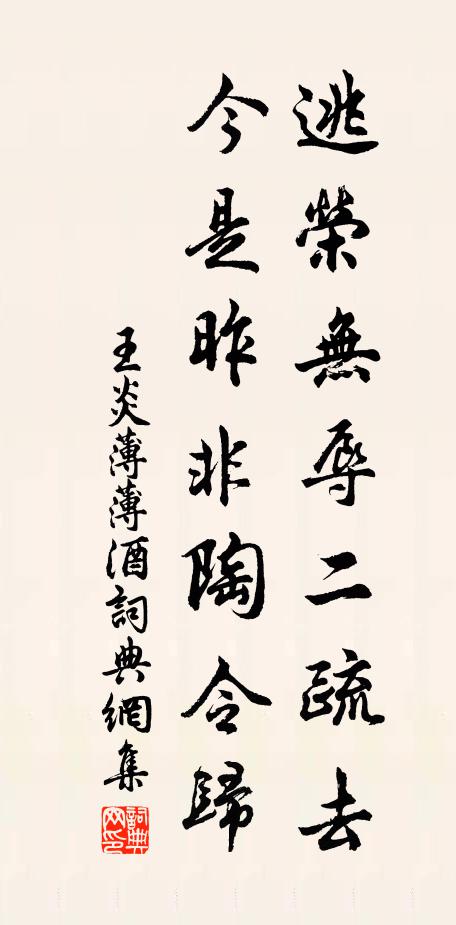 逃榮無辱二疏去
今是昨非陶令歸
王炎薄薄酒詞典網集
詞典網印